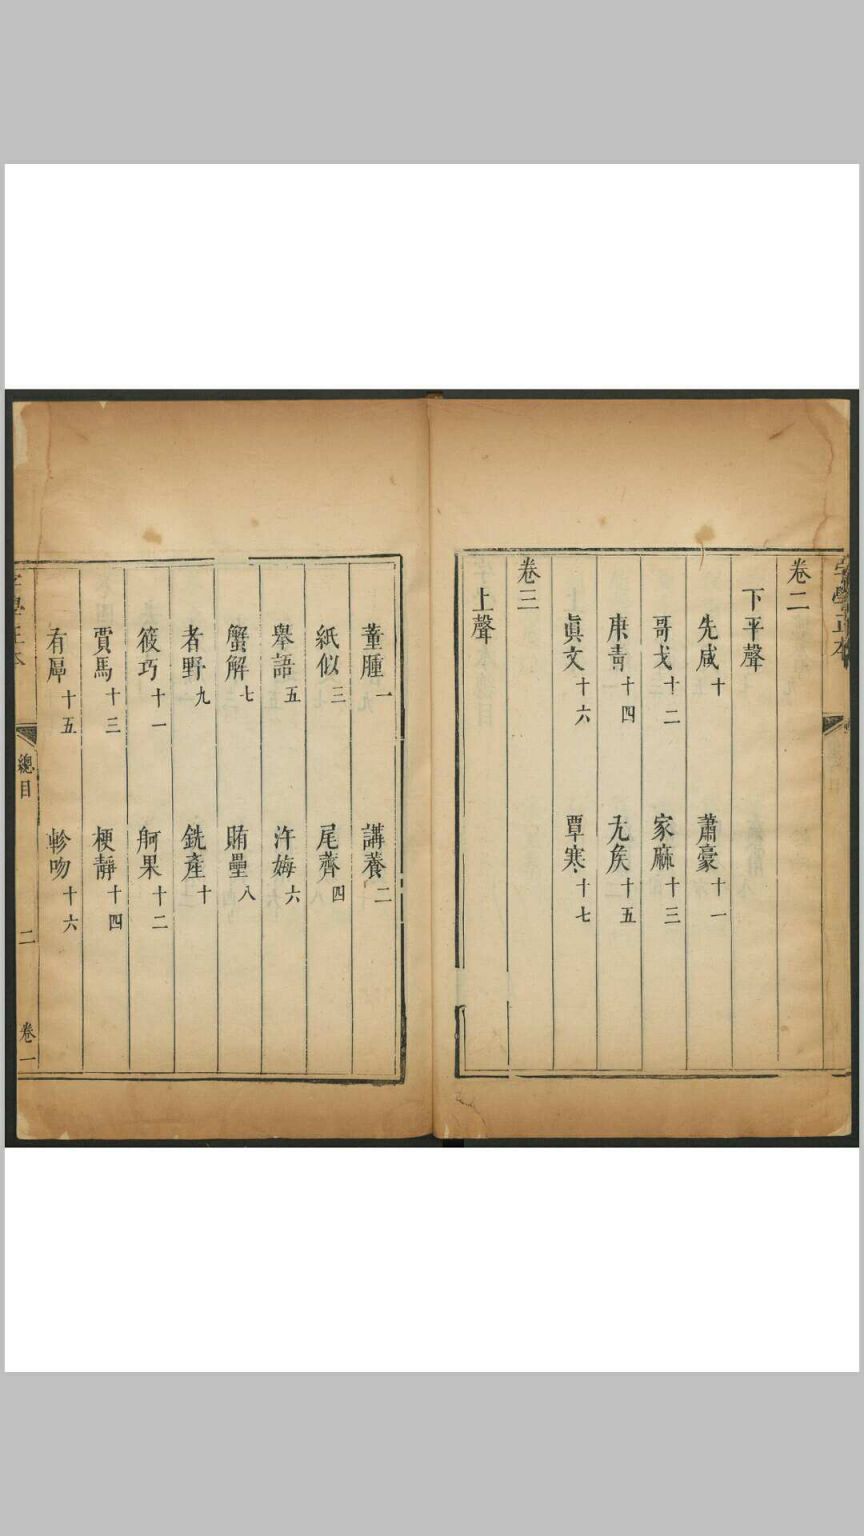 字學正本
卷二
下平聲
先咸十 蕭豪十一
哥戈十二 家麻十三
庚靑十四 尤矦十五
眞文十六 覃寒十七
卷三
上聲
董腫一 講養二
紙似三 尾薺四
舉語五 許姆六
蟹解七 賄壘八
者野九 銑產十
筱巧十一 舸果十二
賈馬十三 梗靜十四
有厚十五 軫吻十六
字學正本
總目
二
卷一